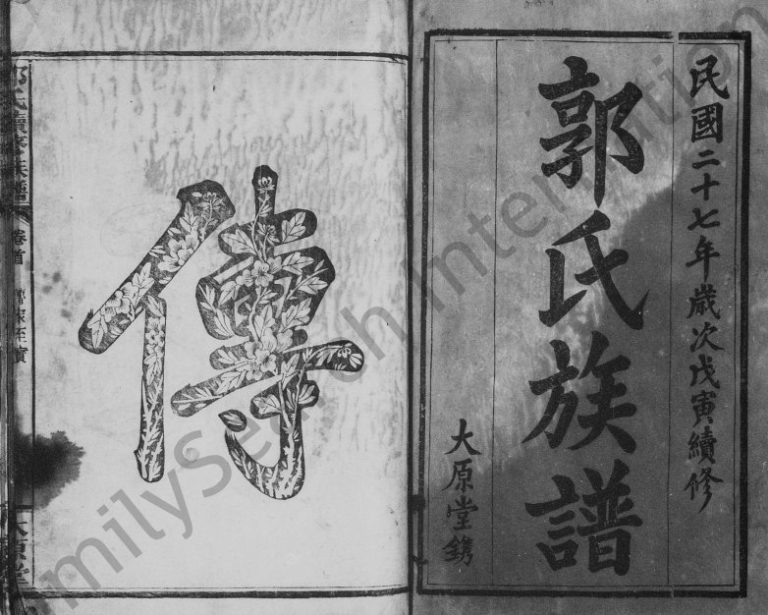 民國二十七年歲次戊寅續修
郭氏族譜
大原堂鐫
傳
氏續修族譜
卷首
大原堂
milySearch International